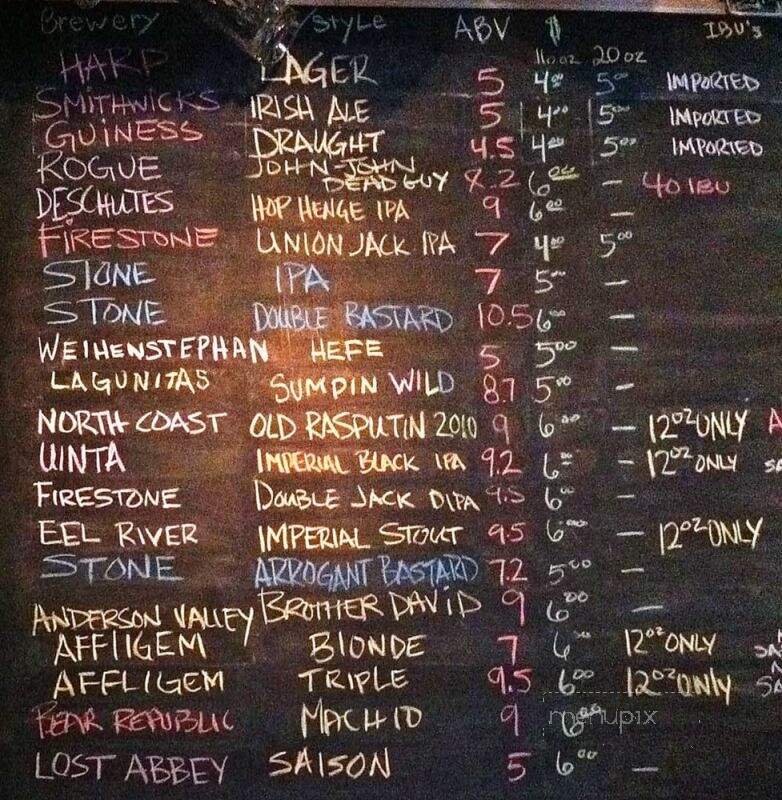 Brewery Style ABV $ IBU's
11oz 20oz
HARP LAGER 5 4.00 5.00 IMPORTED
SMITHWICKS IRISH ALE 5 4.00 5.00 IMPORTED
GUINESS DRAUGHT 4.5 4.00 5.00 IMPORTED
ROGUE JOHN JOHN
DEAD GUY 8.2 6.00 — 40 IBU
DESCHUTES HOP HENGE IPA 9 6.00 —
FIRESTONE UNION JACK IPA 7 4.00 5.00
STONE IPA 7 5.00 —
STONE DOUBLE BASTARD 10.5 6.00 —
WEIHENSTEPHAN HEFE 5 5.00 —
LAGUNITAS SUMPIN WILD 8.7 5.00 —
NORTH COAST OLD RASPUTIN 2010 9 6.00 — 12oz ONLY A
UINTA IMPERIAL BLACK IPA 9.2 6.00 — 12oz ONLY
FIRESTONE DOUBLE JACK DIPA 9.5 6.00 —
EEL RIVER IMPERIAL STOUT 9.5 6.00 — 12oz ONLY
STONE ARROGANT BASTARD 7.2 5.00 —
ANDERSON VALLEY BROTHER DAVID 9 6.00 —
AFFLIGEM BLONDE 7 6.00 12oz ONLY
AFFLIGEM TRIPLE 9.5 6.00 12oz Only
BEAR REPUBLIC MACH 10 9 6.00
menupix
LOST ABBEY SAISON 5 6.00 —